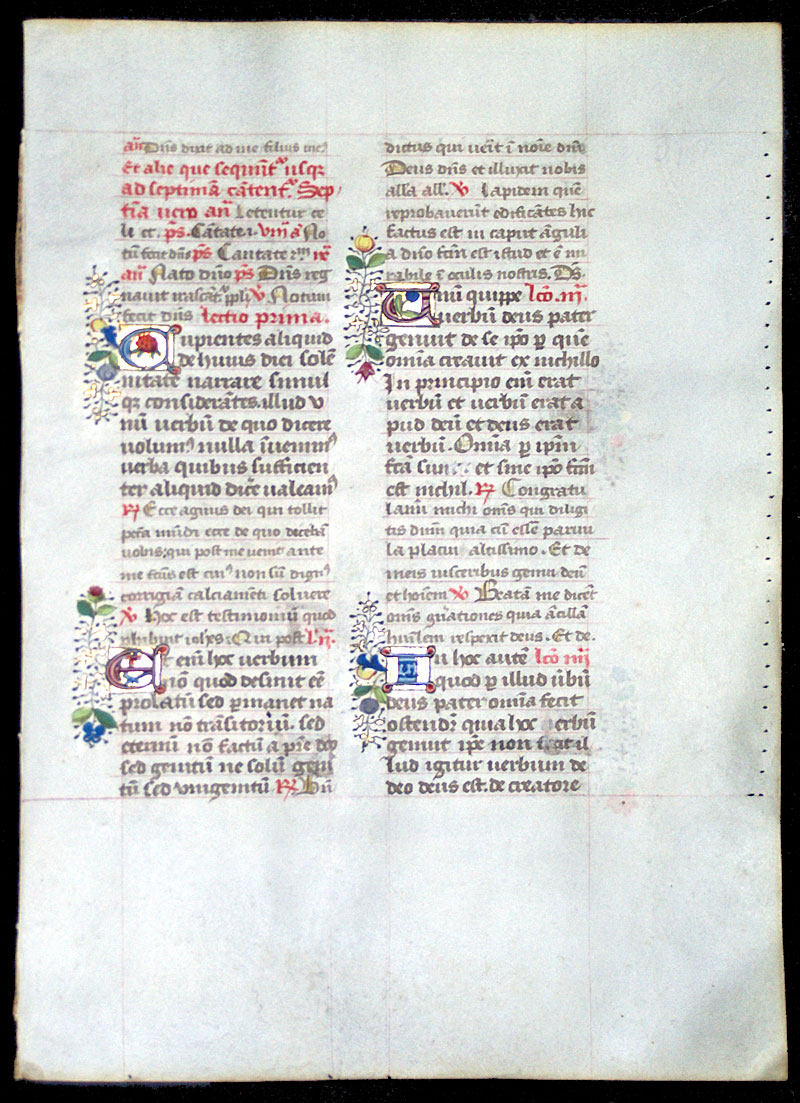 añ Dñs dixit ad me filius me⁹
Et alie que sequũt̃ usqz
ad septimã cãtent̃. Sep
tĩa vero añ Letentur ce
li et. ps. Cãtate. i. viij a No
tũ fecit dñs ps Cantate
añ Nato dño ps Dñs reg
navit irascãt̃ ppli v Notum
fecit dñs Lectio prima.
Cupientes aliquid
de huius diei solẽ
nitate narrare simul
qz considerãtes. illud v
nũ verbũ de quo dicere
volum⁹ nulla ĩvenim⁹
verba quibus sufficien
ter aliquid dic̃e valeam⁹
R Ecce agnus dei qui tollit
pctã mũdi ecce de quo dicebã
vobis; qui post me venit ante
me fctũs est cui⁹ non sũ dign⁹
corrigiã calciamẽti solvere
v Hoc est testimoniũ quod
phibuit ioh̃es; Qui post l. ij.
Est enĩ hoc verbum
nõ quod desinit eẽ
prolatũ sed pmanet na
tum nõ trãsitoriũ. sed
eternũ nõ factũ a pr̃e deo
sed genitũ ne solũ geni
tũ sed unigenitũ R Bñ
dictus qui veit ĩ noĩe dñi
Deus dñs et illuxit nobis
alla all. v Lapidem quẽ
reprobaverũt edificãtes hic
factus est in caput ãguli
a dño fctm est istud et ẽ mi
rabile ĩ oculis nostris. Ds.
Unũ quippe lcõ. iij.
verbũ deus pater
genuit de se ipo p quẽ
omĩa creavit ex nichillo
In principio enĩ erat
verbũ et verbũ erat a
pud deũ et deus erat
verbũ. Omĩa p ipm
fctã sunt et sine ipo fctm
est nichil. R Congratu
lamĩ michi om̃s qui diligi
tis dñm quia cũ essẽ parvu
la placui altissimo. Et de
meis visceribus genui deũ
et hoĩem v Beatã me dicẽt
om̃s gñationes quia ãcillã
humĩlem respexit deus. Et de.
In hoc autẽ lcõ iiij
quod p illud v̾bũ
deus pater omĩa fecit
ostendit̃ quia hoc verbũ
genuit ipẽ non fecit il
lud igitur verbum de
deo deus est. de creatore